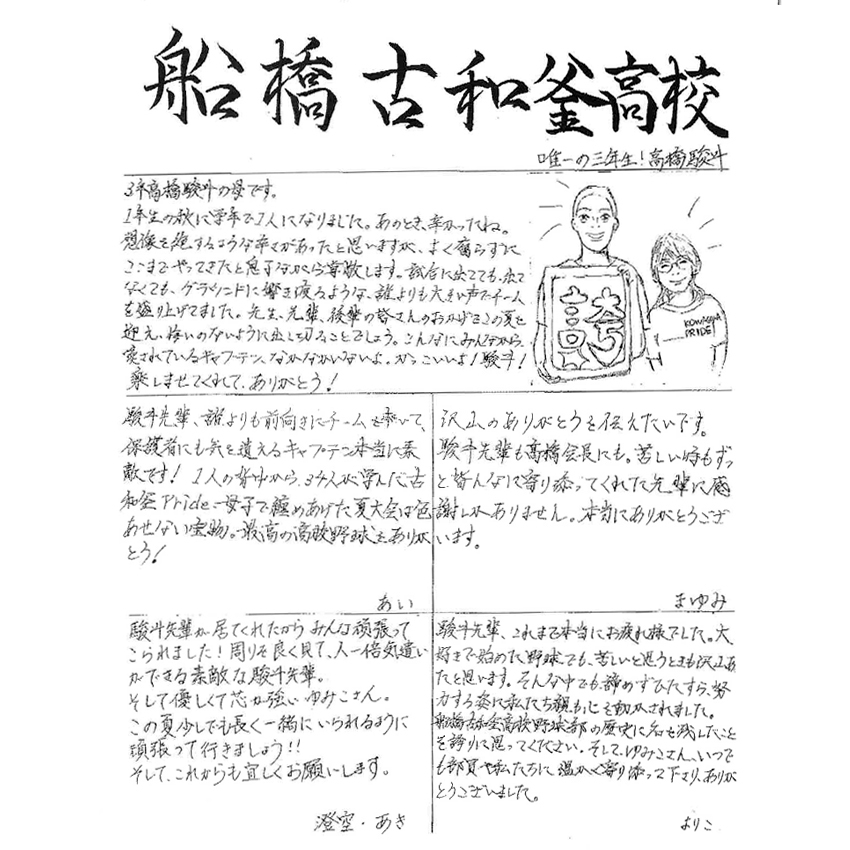 船橋古和釜高校
唯一の三年生！高橋駿斗
3年高橋駿斗の母です。
1年生の秋に学年で1人になりました。あのとき、辛かったね。
想像を絶するような辛さがあったと思いますが、よく腐らずに
ここまでやってきたと息子ながら尊敬します。試合に出てても、出て
なくても、グラウンドに響き渡るような、誰よりも大きい声でチーム
を盛り上げてました。先生、先輩、後輩の皆さんのおかげでこの夏を
迎え、悔いのないように出し切ることでしょう。こんなにみんなから、
愛されているキャプテン、なかなかいないよ。かっこいいよ！駿斗！
楽しませてくれて、ありがとう！
KOWAGAMA
PRIDE
駿斗先輩、誰よりも前向きにチームを率いて、
保護者にも気を遣えるキャプテン本当に素
敵です！1人の背中から、34人が学んだ古
和釜Pride。母子で纏めあげた夏大会は色
あせない宝物。最高の高校野球を、ありが
とう！
あい
沢山のありがとうを伝えたいです。
駿斗先輩も高橋会長にも。苦しい時もずっ
と皆んなに寄り添ってくれた先輩に感
謝しかありません。本当にありがとうござ
います。
まゆみ
駿斗先輩が居てくれたからみんな頑張って
こられました！周りを良く見て、人一倍気遣い
ができる素敵な駿斗先輩。
そして優しくて芯が強いゆみこさん。
この夏少しでも長く一緒にいられるように
頑張って行きましょう!!
そして、これからも宜しくお願いします。
澄空・あき
駿斗先輩、これまで本当にお疲れ様でした。大
好きで始めた野球でも、苦しいと思うときも沢山あ
ったと思います。そんな中でも、諦めずひたすら、努
力する姿に私たち親も心を動かされました。
船橋古和釜高校野球部の歴史に名を残したこと
を誇りに思ってください。そして、ゆみこさん、いつで
も部員や私たちに温かく寄り添って下さり、ありが
とうございました。
よりこ